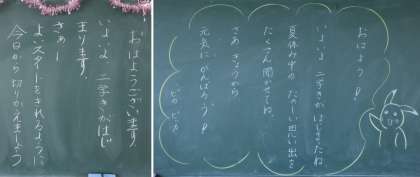 おはようございます
いよいよ 二学きがはじ
まります。
さぁー
よいスタートをきれるように
今日から切りかえましょう
おはよう!
いよいよ 二学きがはじまったね
夏休み中の たのしい思い出を
たくさん聞かせてね。
さあ きょうから
元気にがんばろう!
ピカ ピカ